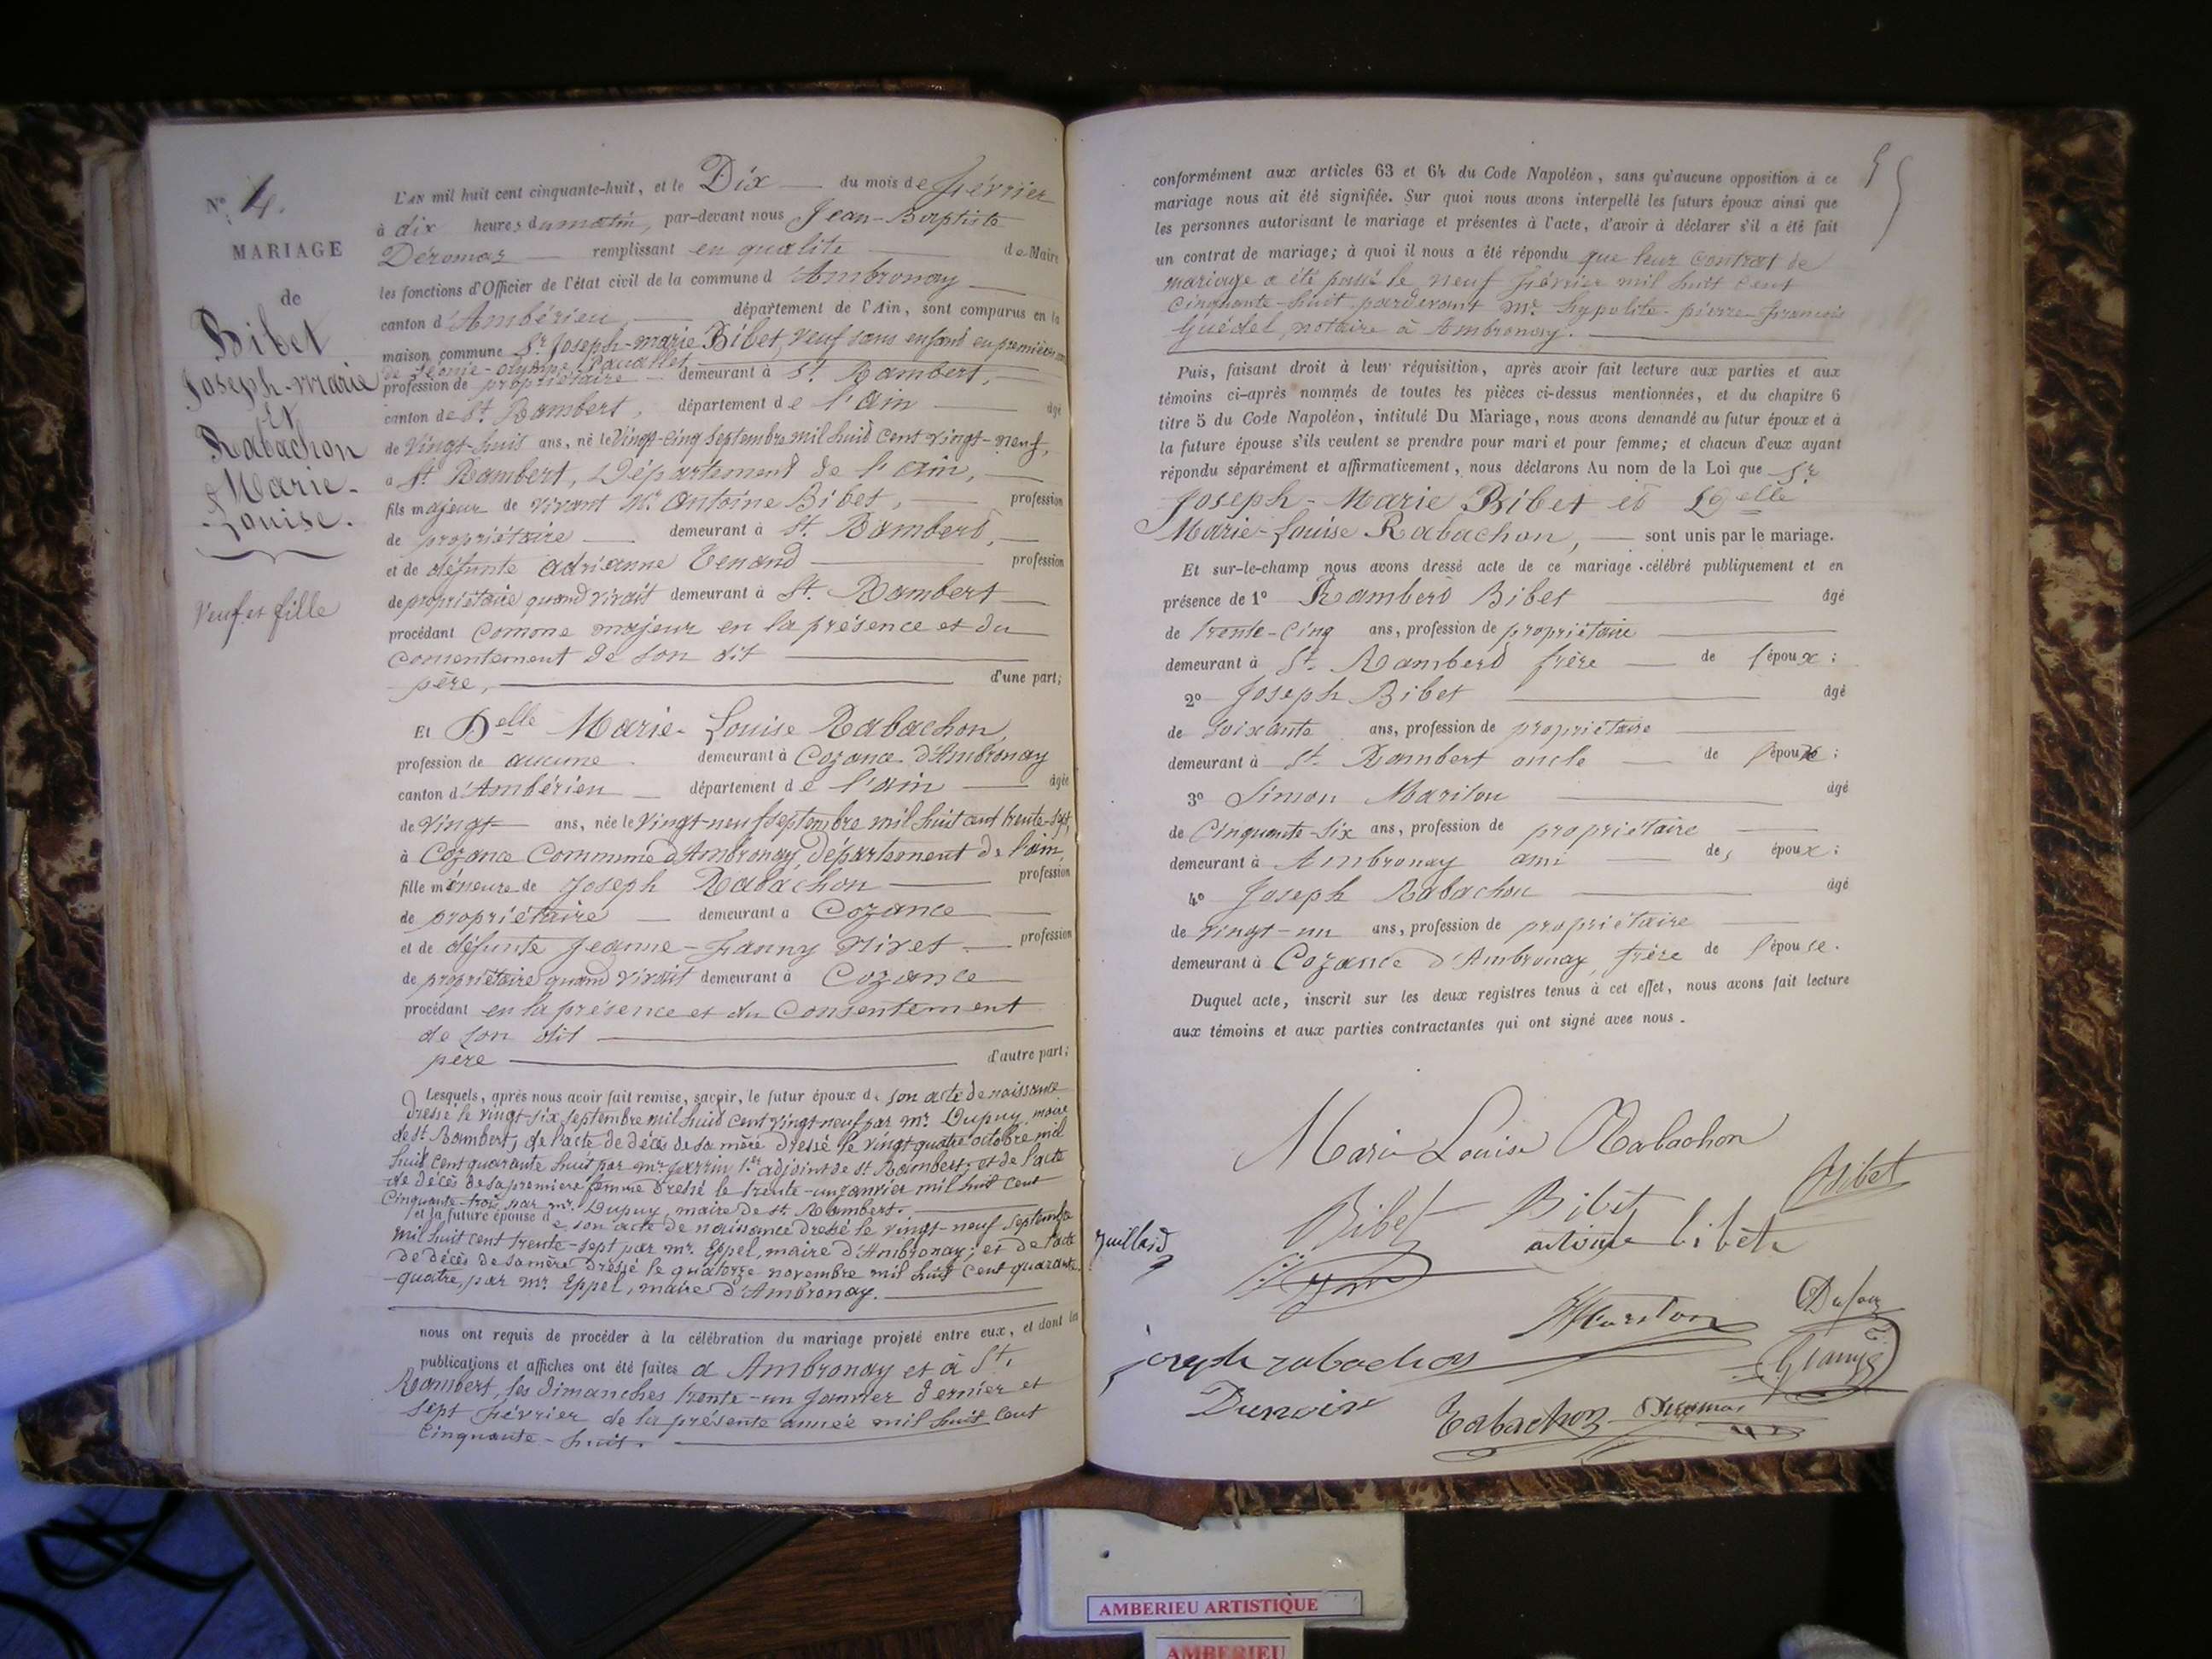 N° 4.
MARIAGE
de
Bibet
Joseph-marie
Et
Rabachon
Marie-
Louise.
Veuf et fille
L'AN mil huit cent cinquante-huit, et le Dix du mois de février
à dix heures du matin, par-devant nous Jean-Baptiste
Déromas remplissant en qualité de Maire
les fonctions d'Officier de l'état civil de la commune d'Ambronay
canton d'Ambérieu, département de l'Ain, sont comparus en la
maison commune Sr. Joseph-marie Bibet, veuf sans enfant en premières
de Léonie-olympe
profession de propriétaire demeurant à St. Rambert,
canton de St. Rambert, département de l'ain âgé
de vingt-huit ans, né le vingt-cinq septembre mil huit cent vingt-neuf,
à St. Rambert, Département de l'ain,
fils majeur de vivant Mr. Antoine Bibet, profession
de propriétaire demeurant à St. Rambert,
et de défunte Adrianne Tenand profession
de propriétaire quand vivait demeurant à St. Rambert
procédant comme majeur en la présence et du
consentement de son dit
père, d'une part;
Et Delle Marie-Louise Rabachon,
profession de aucune demeurant à Cozance d'Ambronay
canton d'Ambérieu département de l'ain âgée
de vingt ans, née le vingt-neuf septembre mil huit cent trente-sept,
à Cozance Commune d'Ambronay, département de l'ain,
fille mineure de Joseph Rabachon profession
de propriétaire demeurant à Cozance
et de défunte Jeanne-Fanny Nivet profession
de propriétaire quand vivait demeurant à Cozance
procédant en la présence et du Consentement
de son dit
père d'autre part;
Lesquels, après nous avoir fait remise, savoir, le futur époux de son acte de naissance
dressé le vingt-six septembre mil huit cent vingt-neuf par mr. Dupuy maire
de St. Rambert, de l'acte de décès de sa mère dressé le vingt quatre octobre mil
huit cent quarante huit par mr. 1er adjoint de St. Rambert, et de l'acte
de décès de sa première femme dressé le trente-un janvier mil huit cent
cinquante-trois par mr. Dupuy, maire de St. Rambert.
et la future épouse de son acte de naissance dressé le vingt-neuf septembre
mil huit cent trente-sept par mr. Eppel, maire d'Ambronay; et de l'acte
de décès de sa mère dressé le quatorze novembre mil huit cent quarante-
quatre, par mr. Eppel, maire d'Ambronay.
nous ont requis de procéder à la célébration du mariage projeté entre eux, et dont les
publications et affiches ont été faites à Ambronay et à St.
Rambert, les dimanches trente-un Janvier dernier et
sept février de la présente année mil huit cent
cinquante-huit.
conformément aux articles 63 et 64 du Code Napoléon, sans qu'aucune opposition à ce
mariage nous ait été signifiée. Sur quoi nous avons interpellé les futurs époux ainsi que
les personnes autorisant le mariage et présentes à l'acte, d'avoir à déclarer s'il a été fait
un contrat de mariage; à quoi il nous a été répondu que leur contrat de
mariage a été passé le neuf février mil huit cent
cinquante-huit pardevant mr. hypolite-pierre-françois
Guédel, notaire à Ambronay.
Puis, faisant droit à leur réquisition, après avoir fait lecture aux parties et aux
témoins ci-après nommés de toutes les pièces ci-dessus mentionnées, et du chapitre 6
titre 5 du Code Napoléon, intitulé Du Mariage, nous avons demandé au futur époux et à
la future épouse s'ils veulent se prendre pour mari et pour femme; et chacun d'eux ayant
répondu séparément et affirmativement, nous déclarons Au nom de la Loi que Sr.
Joseph-Marie Bibet et Delle
Marie-Louise Rabachon, sont unis par le mariage.
Et sur-le-champ nous avons dressé acte de ce mariage célébré publiquement et en
présence de 1° Rambert Bibet âgé
de trente-cinq ans, profession de propriétaire
demeurant à St. Rambert frère de l'époux;
2° Joseph Bibet âgé
de soixante ans, profession de propriétaire
demeurant à St. Rambert oncle de l'époux;
3° Simon Mariton âgé
de Cinquante-six ans, profession de propriétaire
demeurant à Ambronay ami des époux;
4° Joseph Rabachon âgé
de vingt-un ans, profession de propriétaire
demeurant à Cozance d'Ambronay, frère de l'épouse.
Duquel acte, inscrit sur les deux registres tenus à cet effet, nous avons fait lecture
aux témoins et aux parties contractantes qui ont signé avec nous.
Marie Louise Rabachon
Bibet Bibet Bibet
Juillard antoine bibet
joseph rabachon Mariton
Dunoir Rabachon Déromas
AMBERIEU ARTISTIQUE
AMBERIEU